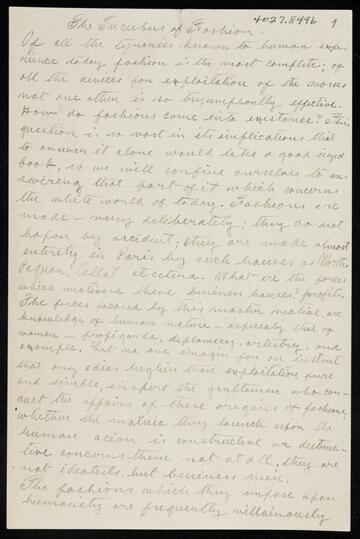 4027.8496 1
The Incubus of Fashion.
Of all the tyrannies known to human expe-
rience today fashion is the most complete; of
all the devices for exploitation of the
not one other is so triumphantly effective.
How do fashions come into existance? This
question is so vast in its implications that
to answer it alone would take a good sized
book, so we will confine ourselves to an-
swering that part of it which concerns
the white world of today. Fashions are
made — very deliberately; they do not
hapen by accident; they are made almost
entirely in Paris by such houses as Worth
Paquin, Callot etcetera. What are the forces
which motivate these business houses? profits.
The forces focused by this master motive, are
knowledge of human nature — especially that of
women — propiganda, diplomacy, artistry, and
example. Let no one imagin for an instant
that any ideas higher than exploitation pure
and simple, inspire the gentlemen who con-
duct the affairs of these origens of fashions;
whether the they launch upon the
human is constructive or distruc-
tive concerns them not at all, they are
not idealists, but business men.
The fashions which they impose upon
humanity are frequently villainously